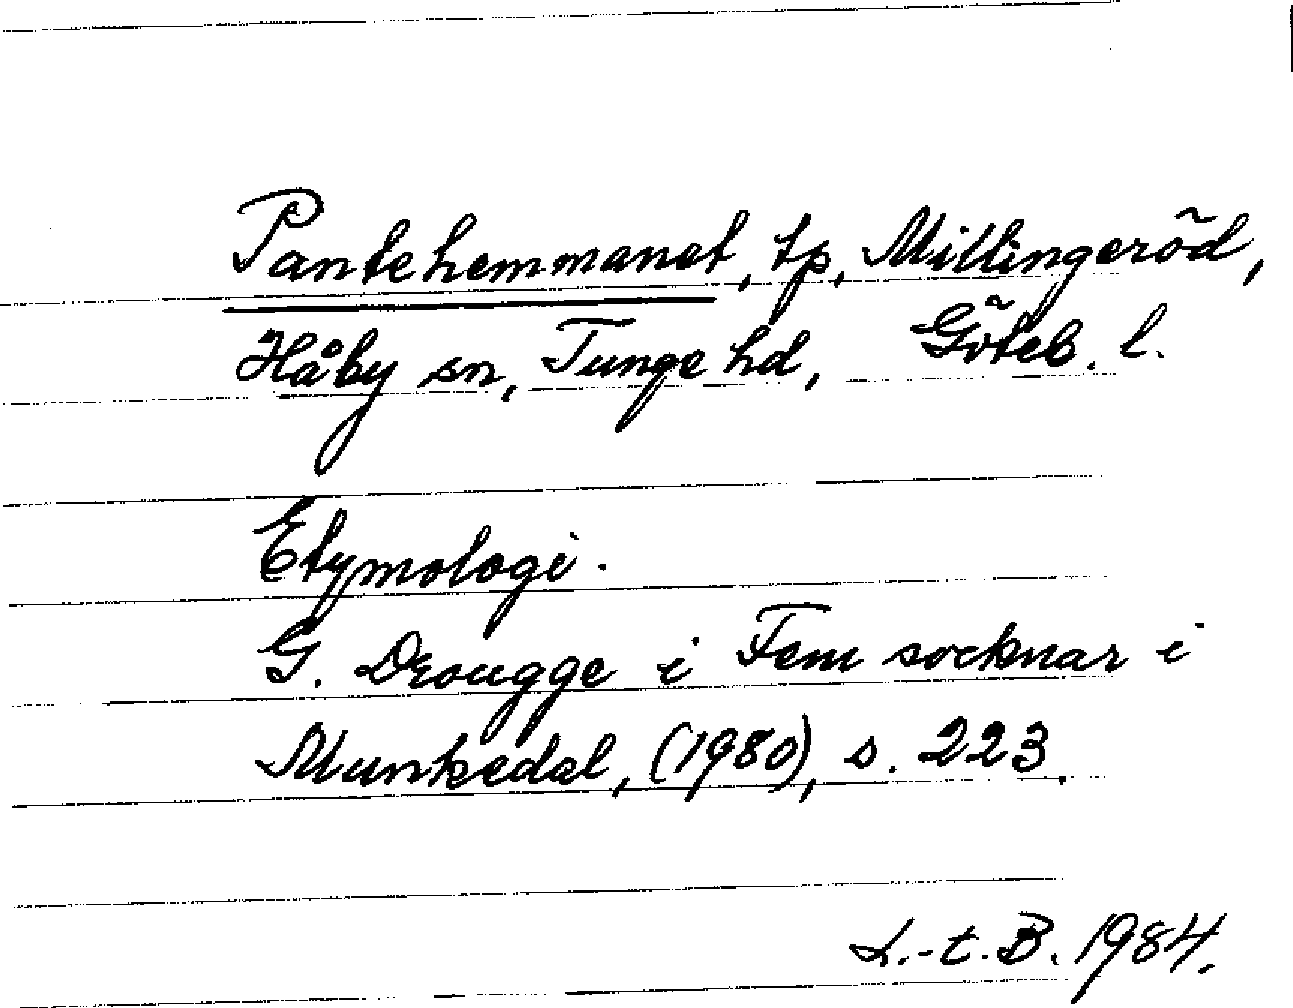 Pantehemmanet, tp, Millingeröd,
Håby sn, Tunge hd, Göteb. l.
Etymologi.
G. Drougge i Fem socknar i
Munkedal, (1980), s. 223.
L.-t. B. 1984.